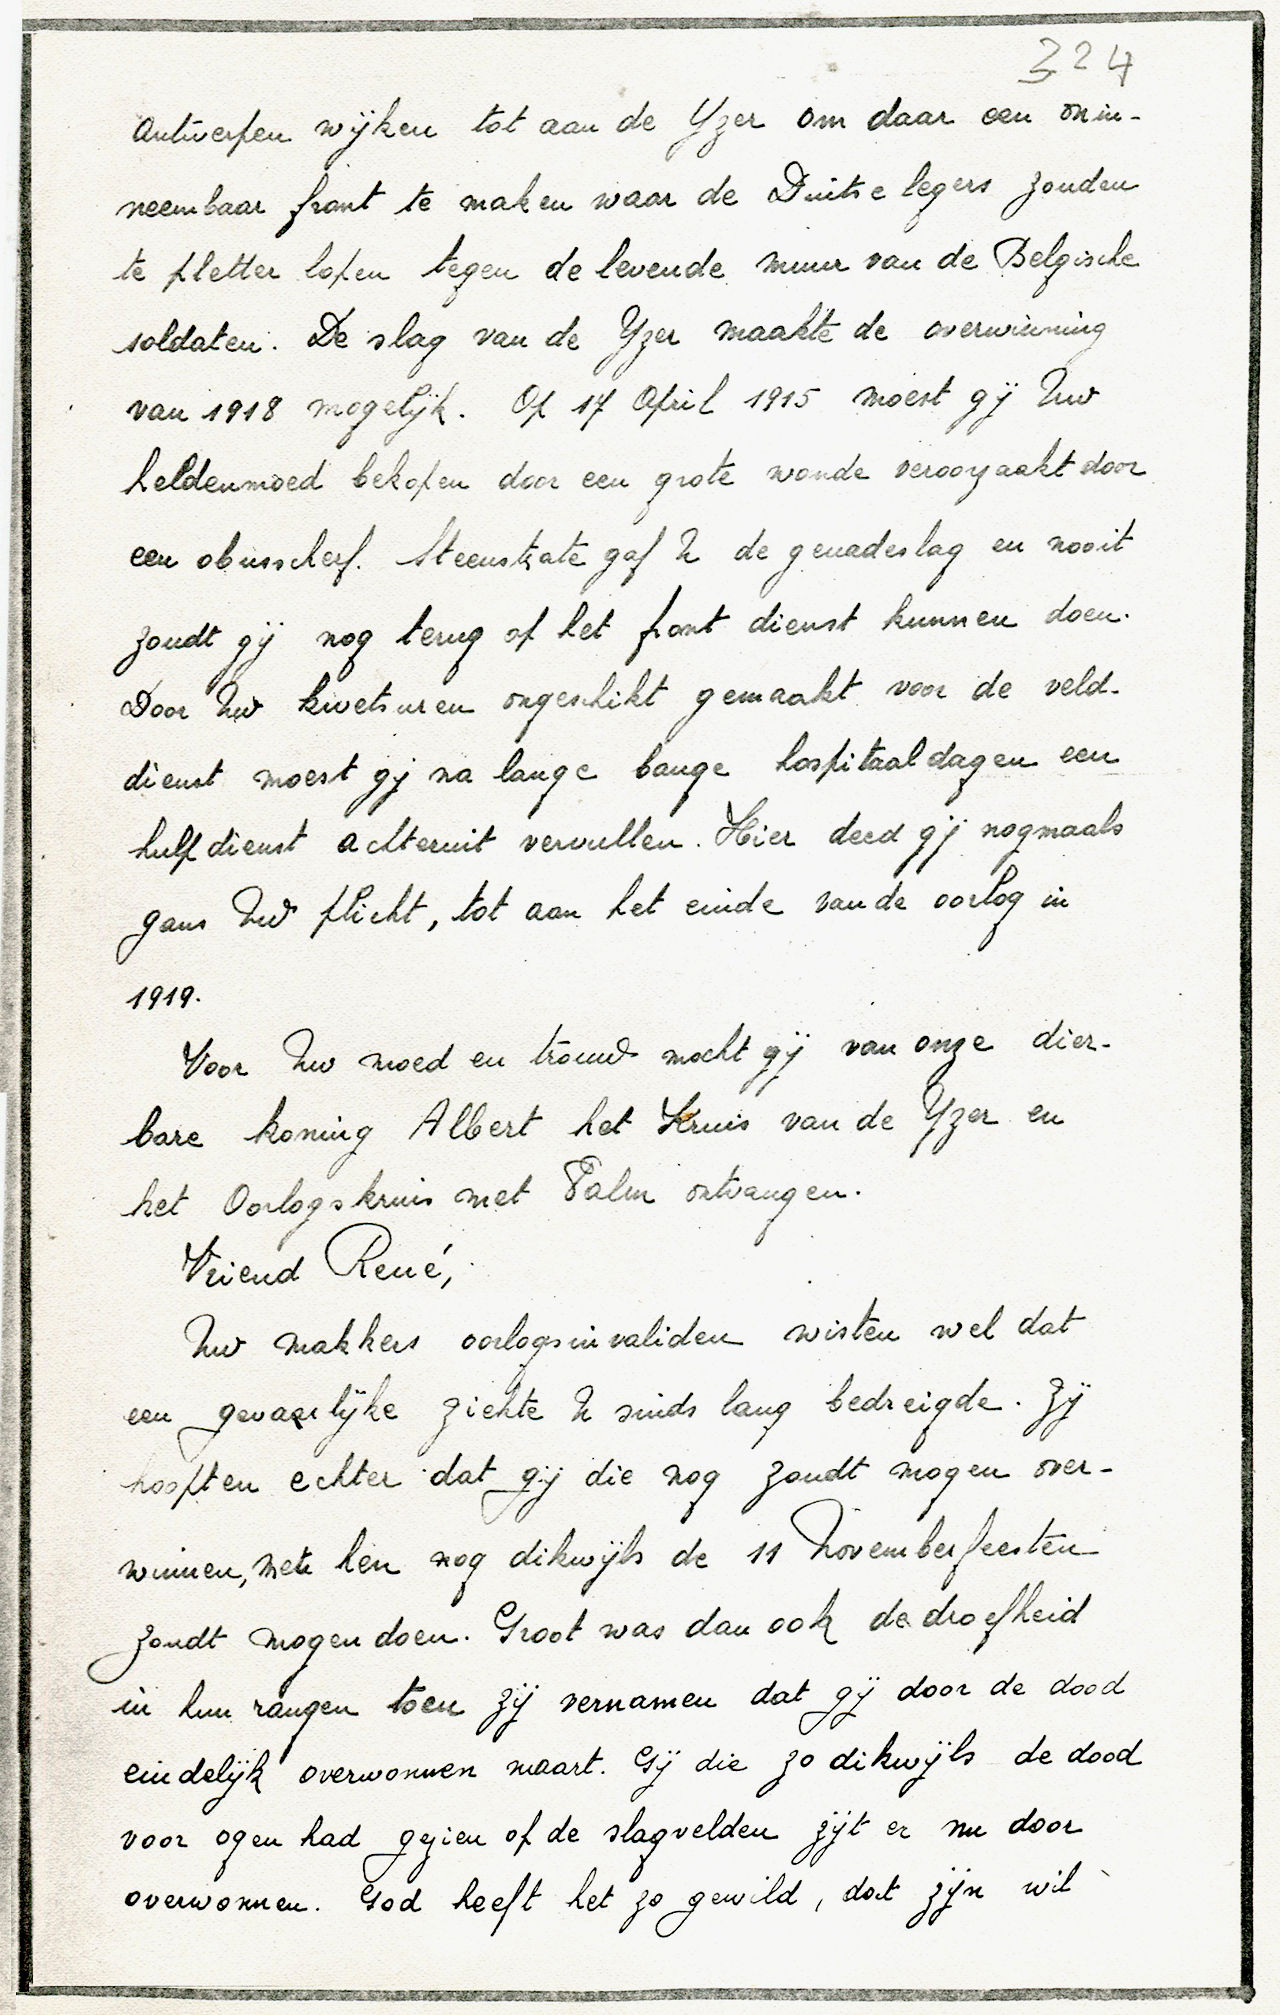 324
Antwerpen wijken tot aan de Yzer om daar een onin-
neembaar front te maken waar de Duitse legers zouden
te pletter lopen tegen de levende muur van de Belgische
soldaten. De slag van de Yzer maakte de overwinning
van 1918 mogelijk. Op 17 April 1915 moest gij Uw
heldenmoed bekopen door een grote wonde veroorzaakt door
een obusscherf. Steenstrate gaf U de genadeslag en nooit
zoudt gij nog terug op het front dienst kunnen doen.
Door Uw kwetsuren ongeschikt gemaakt voor de veld-
dienst moest gij na lange bange hospitaaldagen een
hulpdienst achteruit vervullen. Hier deed gij nogmaals
gans Uw plicht, tot aan het einde van de oorlog in
1919.
Voor Uw moed en trouw mocht gij van onze dier-
bare koning Albert het Kruis van de Yzer en
het Oorlogskruis met Palm ontvangen.
Vriend René,
Uw makkers oorlogsinvaliden wisten wel dat
een gevaarlijke ziekte U sinds lang bedreigde. Zij
hoopten echter dat gij die nog zoudt mogen over-
winnen, met hen nog dikwijls de 11 Novemberfeesten
zoudt mogen doen. Groot was dan ook de droefheid
in hun rangen toen zij vernamen dat gij door de dood
eindelijk overwonnen waart. Gij die zo dikwijls de dood
voor ogen had gezien op de slagvelden zijt er nu door
overwonnen. God heeft het zo gewild, dat zijn wil